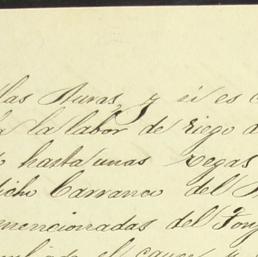 llas Auras, y si es
a la labor de riego
hasta unas vegas
icho Barranco del
mencionadas del
el cauce y